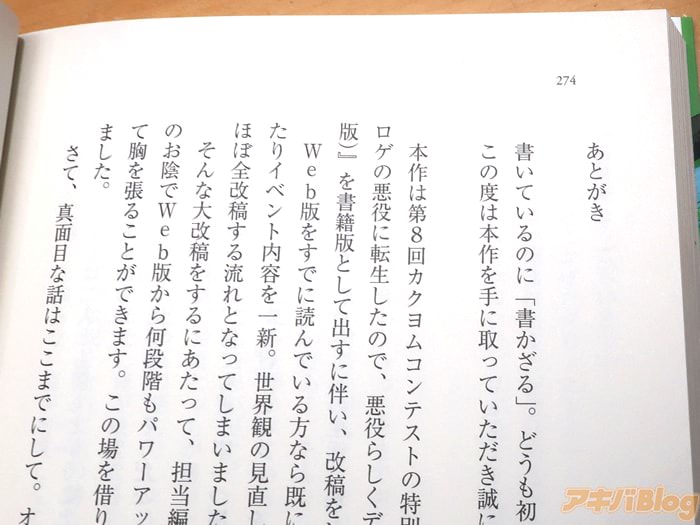 274
あとがき
書いているのに「書かざる」。どうも初
この度は本作を手に取っていただき誠に
本作は第8回カクヨムコンテストの特別
ロゲの悪役に転生したので、悪役らしくデ
版)』を書籍版として出すに伴い、改稿を
Web版をすでに読んでいる方なら既に
たりイベント内容を一新。世界観の見直し
ほぼ全改稿する流れとなってしまいました
そんな大改稿をするにあたって、担当編
のお陰でWeb版から何段階もパワーアッ
て胸を張ることができます。この場を借り
ました。
さて、真面目な話はここまでにして。オ
アキバBlog